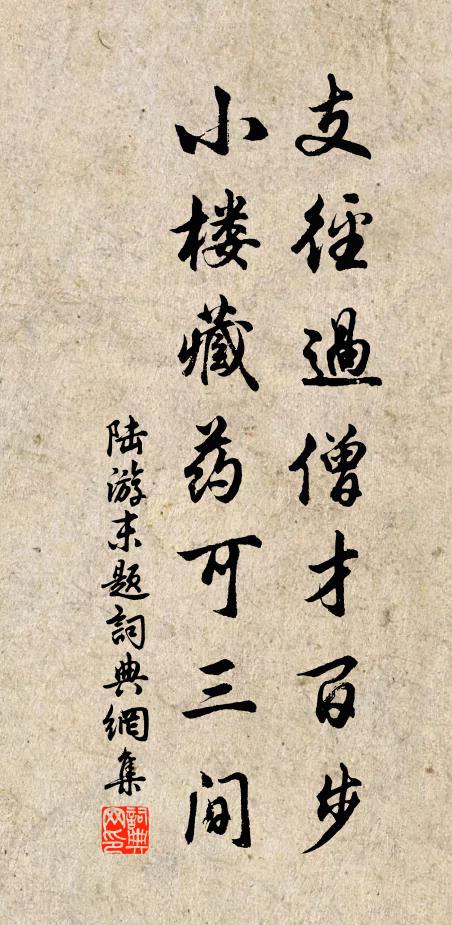 支径過僧才百步
小楼藏药可三间
陆游末题詞典網集
詞典网印